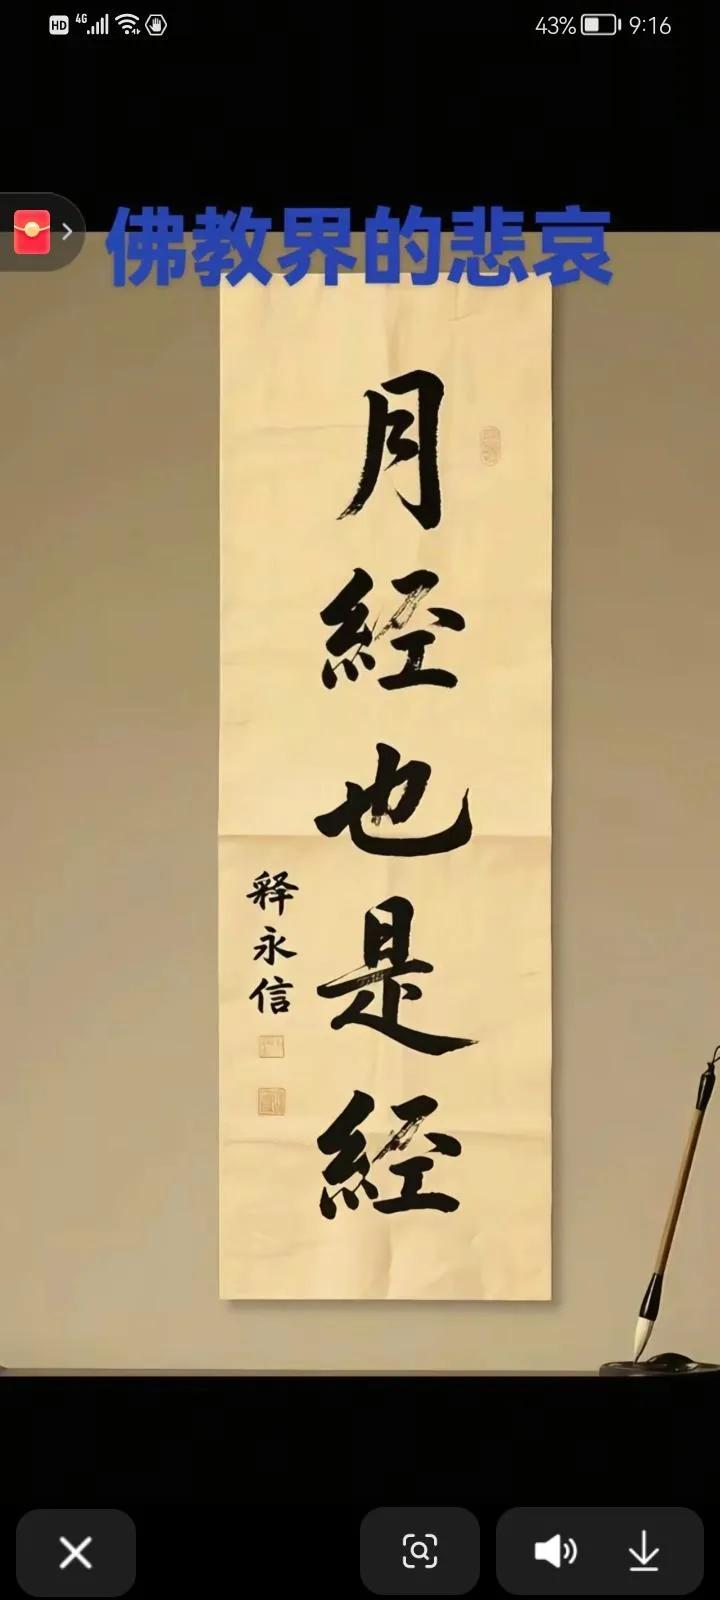 HD 4G 43% 9:16
佛教界的悲哀
月経也是経
释永信